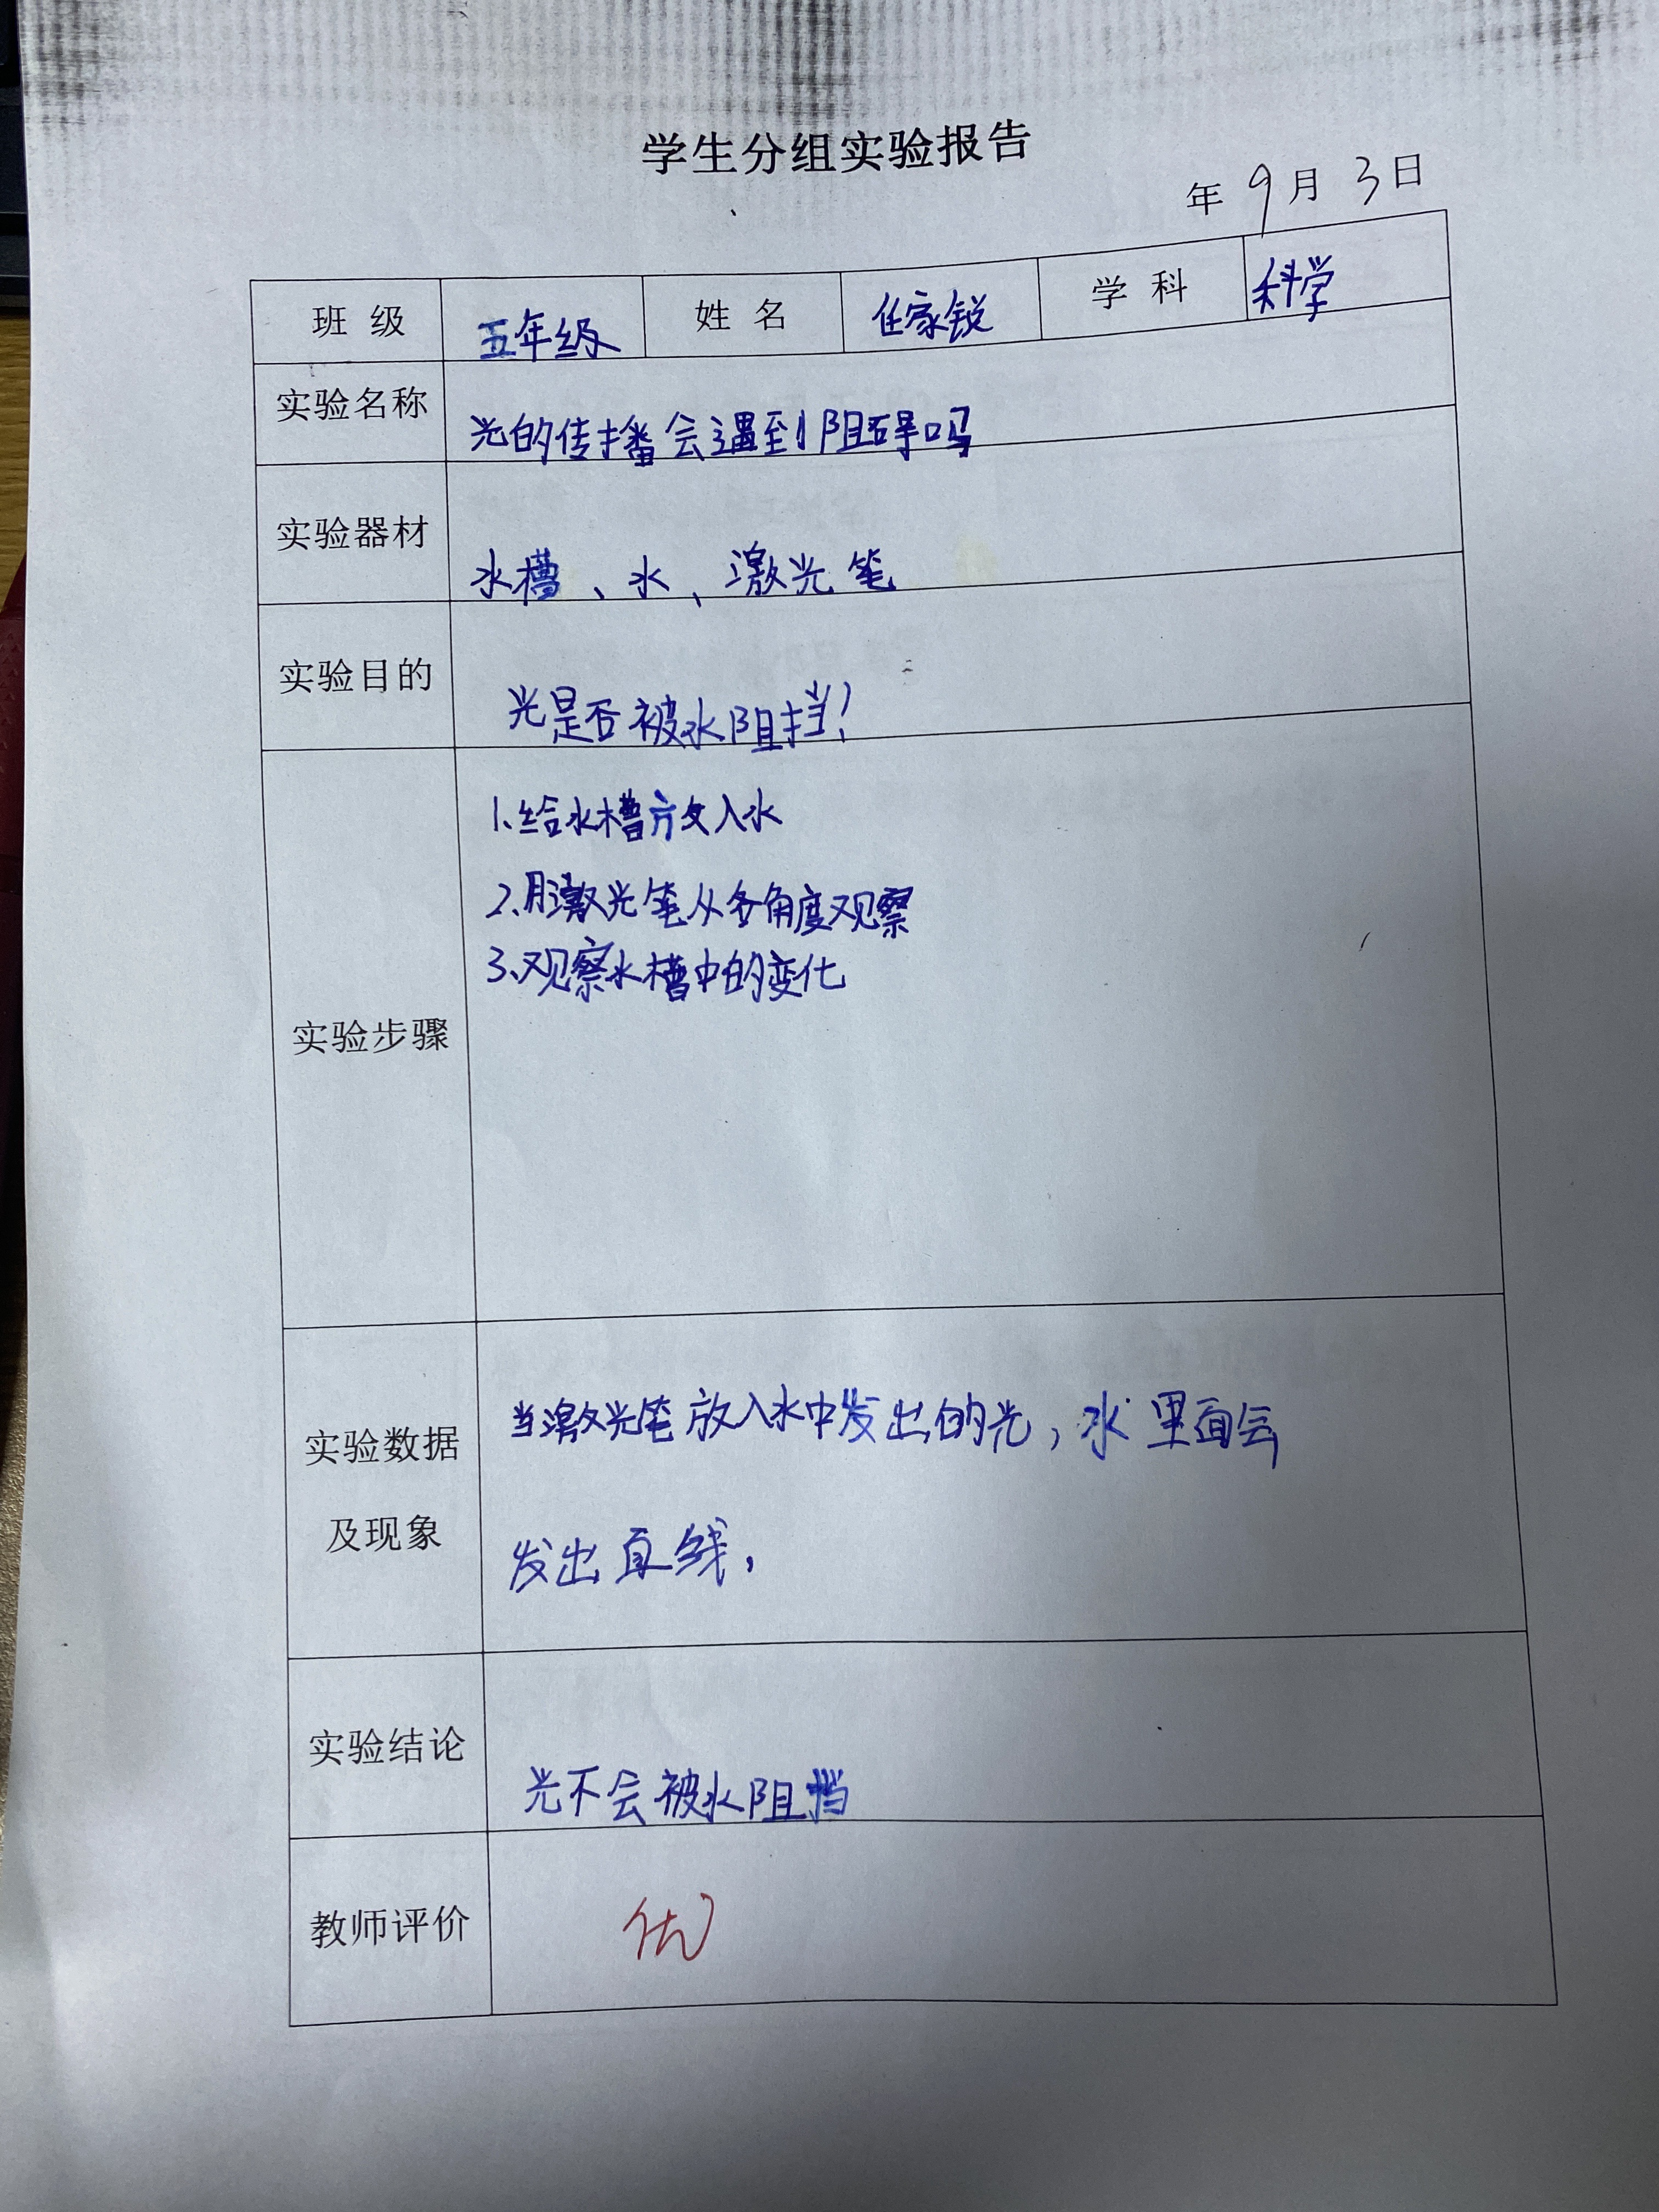 学生分组实验报告
年 9月 3日
班 级 五年级 姓 名 任家锐 学 科 科学
实验名称 光的传播会遇到阻碍吗
实验器材 水槽、水、激光笔
实验目的 光是否被水阻挡!
实验步骤
1、给水槽放入水
2、用激光笔从各角度观察
3、观察水槽中的变化
实验数据
及现象
当激光笔放入水中发出的光,水里面会
发出直线,
实验结论 光不会被水阻挡
教师评价 优